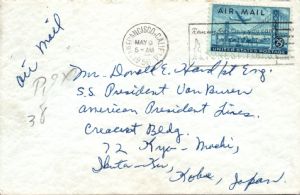 SAN FRANCISCO, CALIF.
MAY 9
5 - AM
AIR MAIL
UNITED STATES
5¢
air mail
Mr. Donald E.
S.S. President Van Buren
American President Lines.
Crescent Bldg.
72 Kyo - Machi,
Ikuta-Ku,
Kobe, Japan.
38